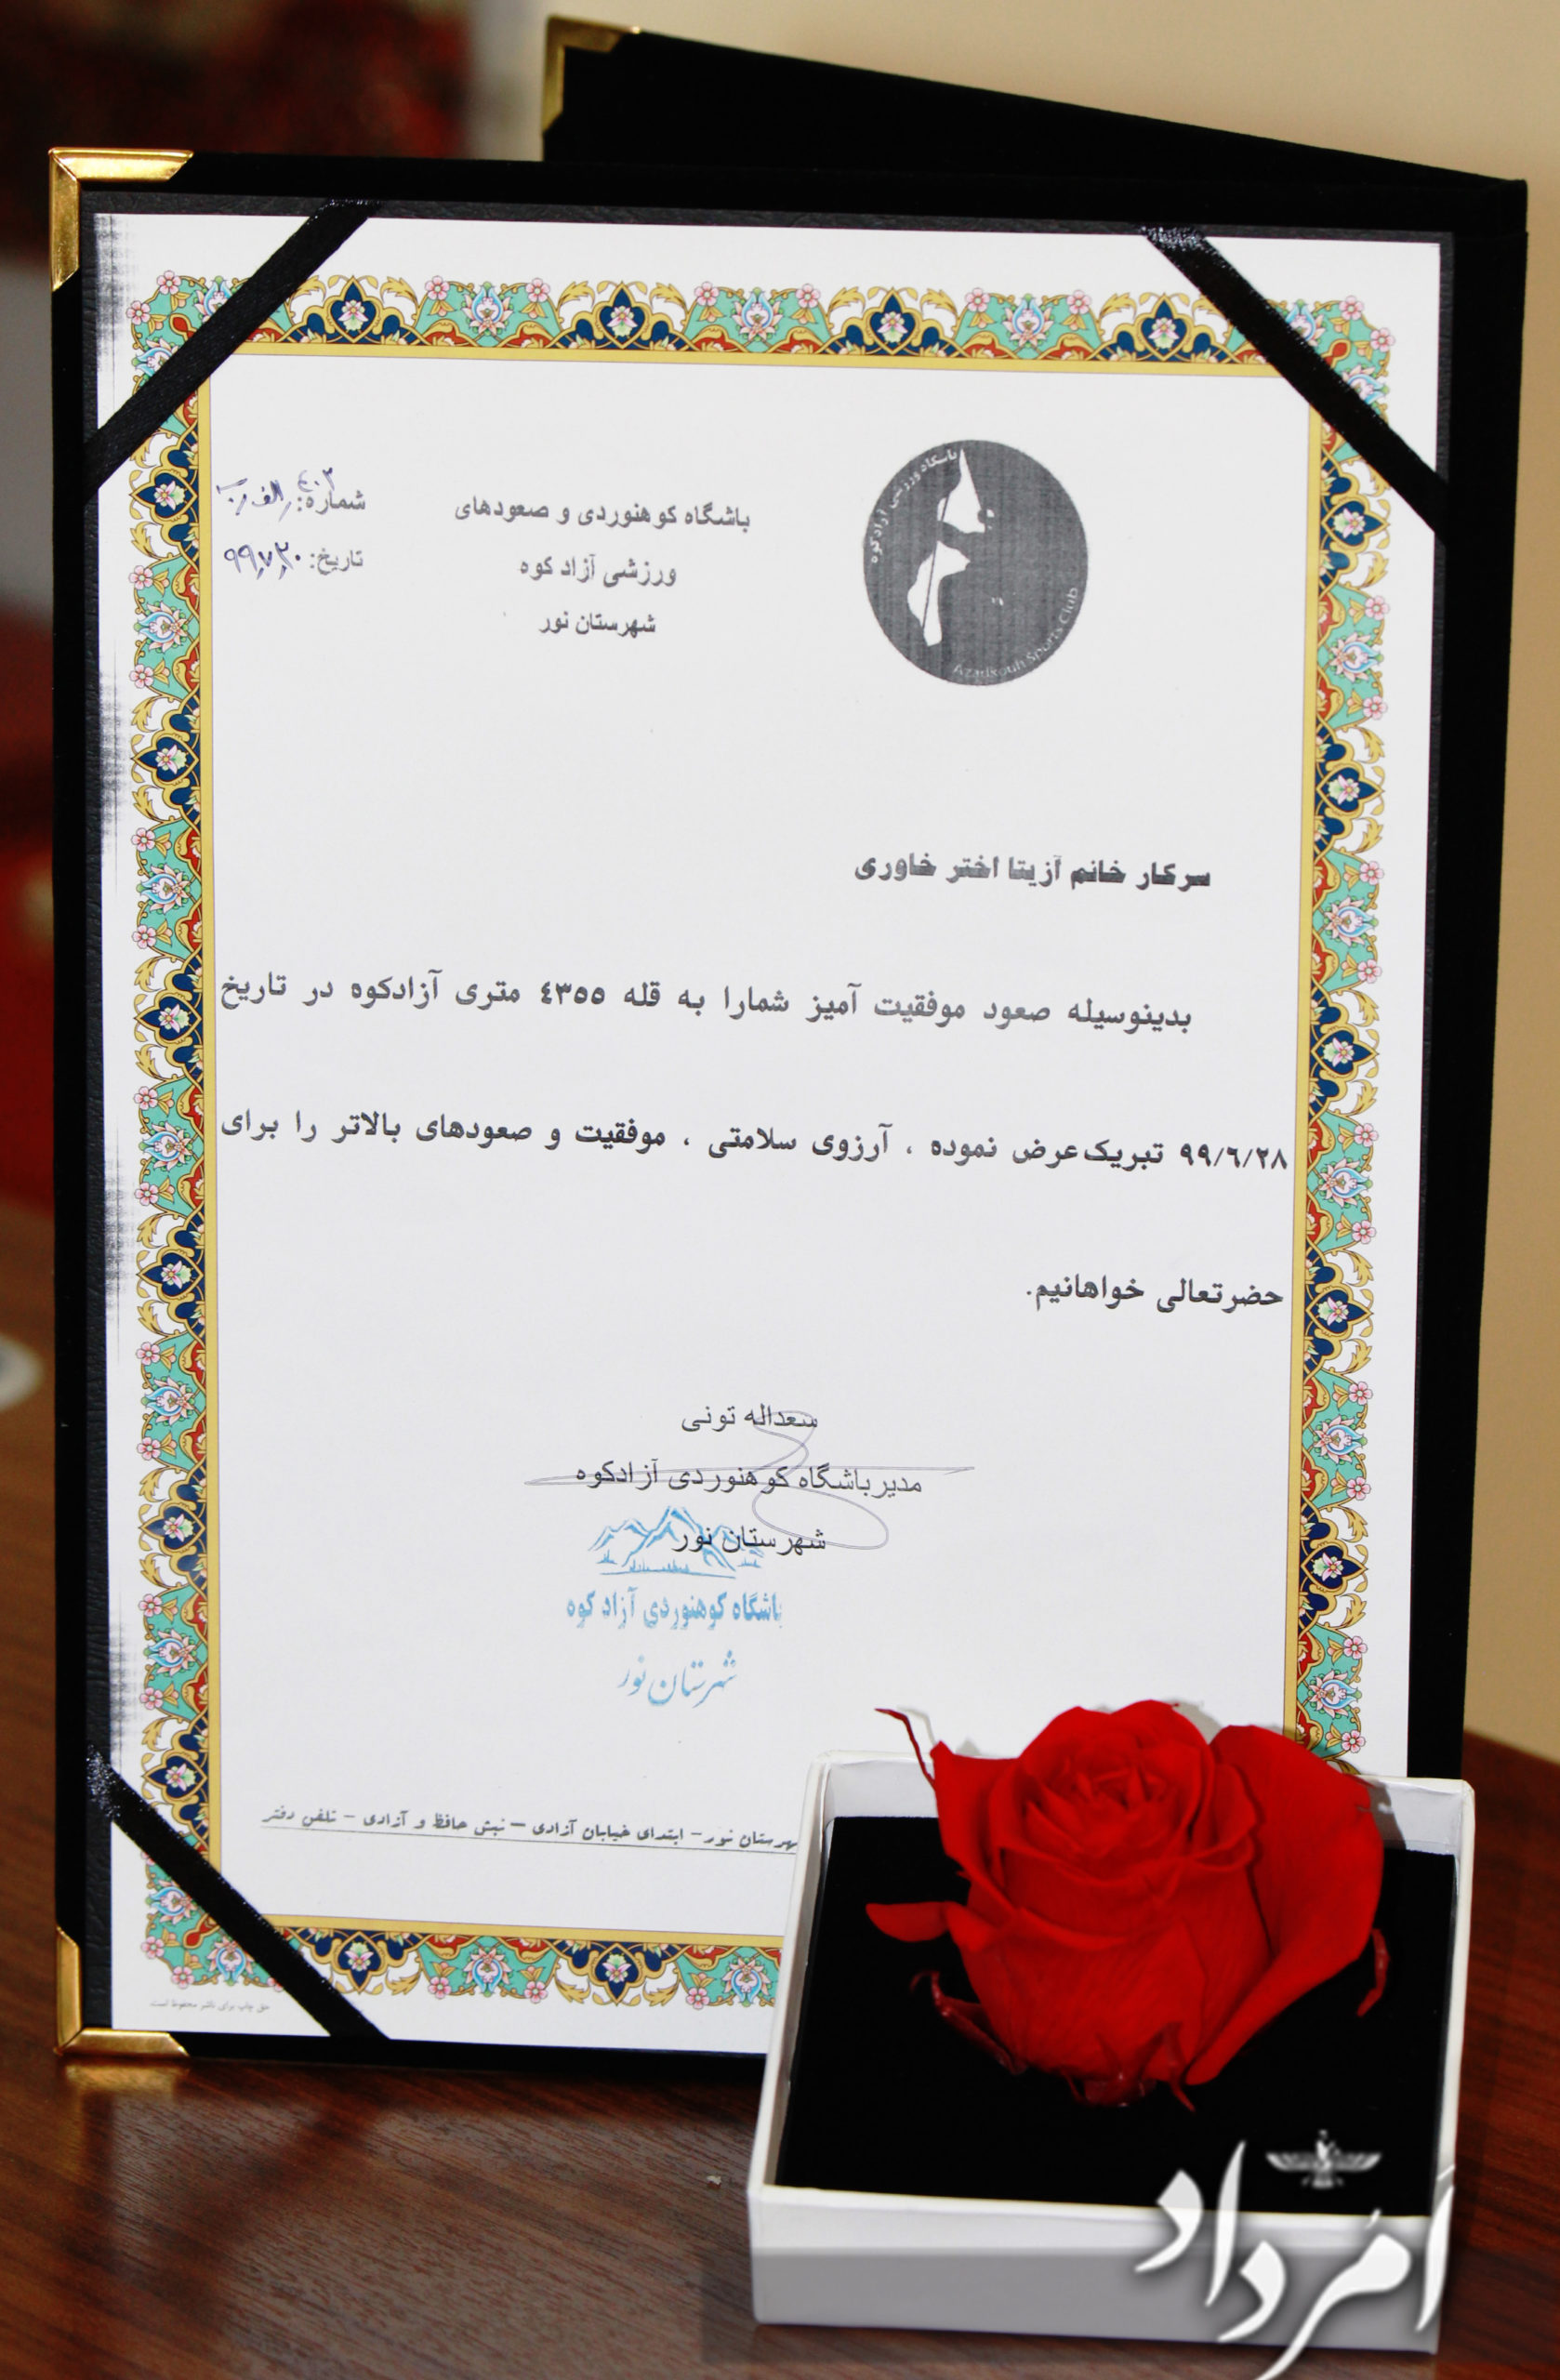 باشگاه ورزشی آزادکوه
Azadkouh Sports Club
باشگاه کوهنوردی و صعودهای
ورزشی آزاد کوه
شهرستان نور
شماره: ٤٠٢/الف/ب
تاریخ: ٩٩٫٧٫٢٠
سرکار خانم آزیتا اختر خاوری
بدینوسیله صعود موفقیت آمیز شمارا به قله ٤٣٥٥ متری آزادکوه در تاریخ
٩٩/٦/٢٨ تبریک عرض نموده ، آرزوی سلامتی ، موفقیت و صعودهای بالاتر را برای
حضرتعالی خواهانیم.
سعداله تونی
مدیر باشگاه کوهنوردی آزادکوه
شهرستان نور
باشگاه کوهنوردی آزاد کوه
شهرستان نور
هرستان نور - ابتدای خیابان آزادی - نبش حافظ و آزادی - تلفن دفتر
حق چاپ برای ناشر محفوظ است.
اَمُرداد